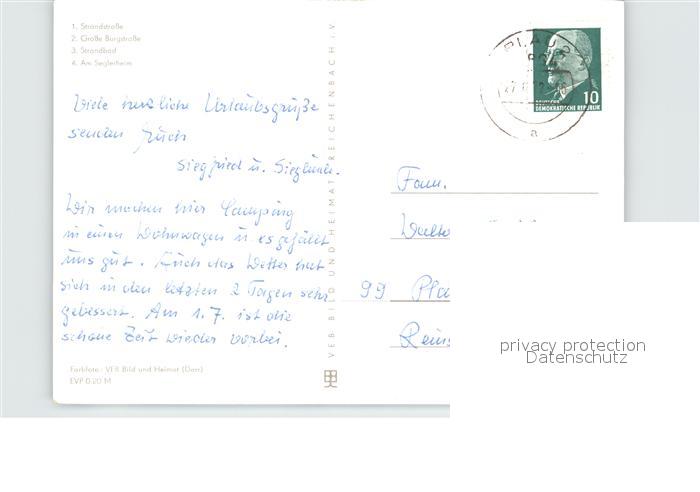 1. Strandstraße
2. Große Burgstraße
3. Strandbad
4. Am Seglerheim
Viele herzliche Urlaubsgrüße
senden Euch
Siegfried u. Sieglinde.
Wir machen hier Camping
in einem Wohnwagen u. es gefällt
uns gut. Auch das Wetter hat
sich in den letzten 2 Tagen sehr
gebessert. Am 1.7. ist die
schöne Zeit wieder vorbei.
Farbfoto: VEB Bild und Heimat (Darr)
EVP 0.20 M
VEB BILD UND HEIMAT REICHENBACH i. V.
10
DEUTSCHE
DEMOKRATISCHE REPUBLIK
PLAU
a
Fam.
Walte
99 Pla
Reins
privacy protection
Datenschutz